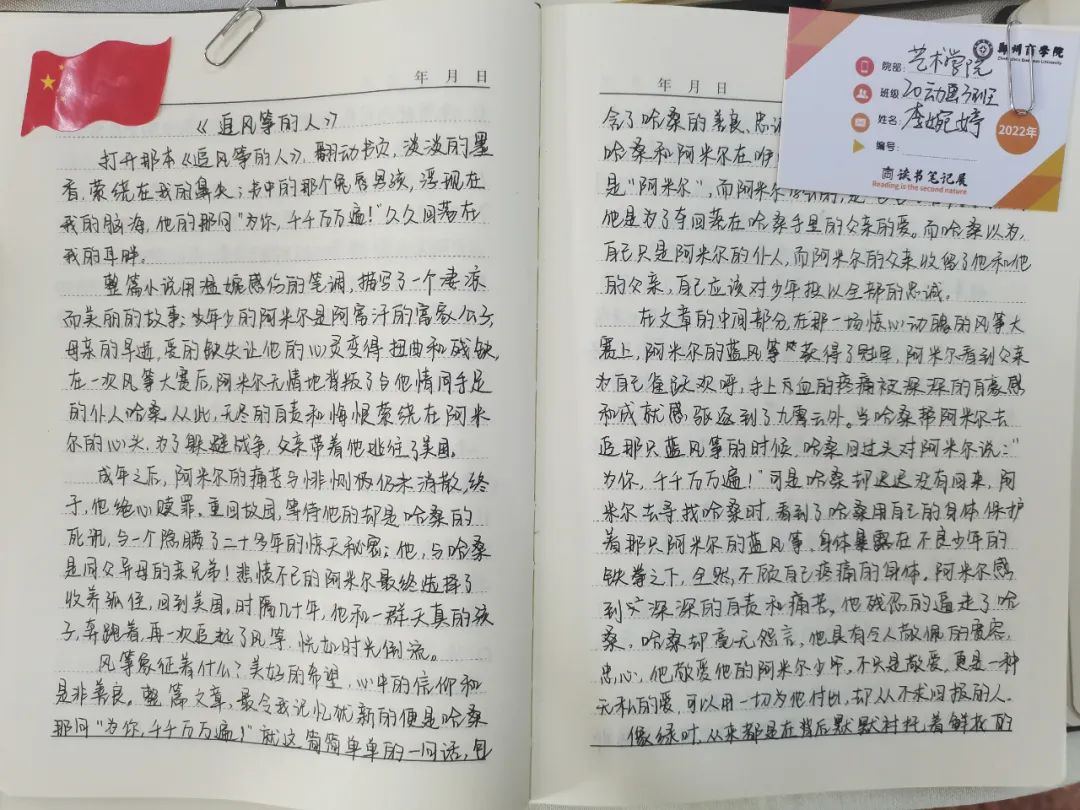 年 月 日
《追风筝的人》
打开那本《追风筝的人》,翻动书页,淡淡的墨
香,萦绕在我的鼻尖;书中的那个兔唇男孩,浮现在
我的脑海,他的那句“为你,千千万万遍!”久久回荡在
我的耳畔。
整篇小说用温婉感伤的笔调,描写了一个凄凉
而美丽的故事:少年的阿米尔是阿富汗的富家公子,
母亲的早逝,爱的缺失让他的心灵变得扭曲和残缺,
在一次风筝大赛后,阿米尔无情地背叛了与他情同手足
的仆人哈桑。从此,无尽的自责和悔恨萦绕在阿米
尔的心头,为了躲避战争,父亲带着他逃往了美国。
成年之后,阿米尔的痛苦与悱恻仍未消散,终
于,他绝心赎罪。重回故园,等待他的却是哈桑的
死讯,与一个隐瞒了二十多年的惊天秘密:他,与哈桑
是同父异母的亲兄弟!悲愤不已的阿米尔最终选择了
收养孤侄,回到美国。时隔几十年,他和一群天真的孩
子,奔跑着,再一次追起了风筝,恍如时光倒流。
风筝象征着什么?美好的希望,心中的信仰和
是非善良。整篇文章,最令我记忆犹新的便是哈桑
那句“为你,千千万万遍!”就这简简单单的一句话,包
年 月 日
含了哈桑的善良、忠诚
哈桑和阿米尔在咿
是“阿米尔”,而阿米尔
他是为了夺回落在哈桑手里的父亲的爱。而哈桑以为,
自己只是阿米尔的仆人,而阿米尔的父亲收留了他和他
的父亲,自己应该对少年报以全部的忠诚。
在文章的中间部分,在那一场惊心动魄的风筝大
赛上,阿米尔的蓝风筝获得了冠军,阿米尔看到父亲
为自己雀跃欢呼,手上流血的疼痛被深深的自豪感
和成就感驱逐到了九霄云外。当哈桑帮阿米尔去
追那只蓝风筝的时候,哈桑回过头对阿米尔说:“
为你,千千万万遍!”可是哈桑却迟迟没有回来,阿
米尔去寻找哈桑时,看到了哈桑用自己的身体保护
着那只阿米尔的蓝风筝,身体暴露在不良少年的
铁拳之下,全然不顾自己疼痛的身体。阿米尔感
到深深的自责和痛苦。他残忍的逼走了哈
桑,哈桑却毫无怨言,他具有令人敬佩的宽容,
忠心,他敬爱他的阿米尔少爷,不只是敬爱,更是一种
无私的爱,可以用一切为他付出,却从不求回报的人。
像绿叶,从来都是在背后默默衬托着鲜花的
郑州商学院
院部:艺术学院
班级 20动画3班
姓名:李婉婷
编号:
2022年
商读书笔记展
Reading is the second nature